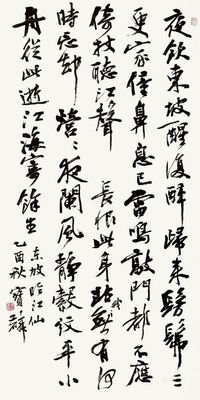 夜飲東坡醒復醉歸來髣髴三
更家僮鼻息已雷鳴敲門都不應
倚杖聽江聲 長恨此身非我有何
時忘卻營々夜闌風靜縠紋平小
舟從此逝江海寄餘生
東坡臨江仙
乙酉秋寶